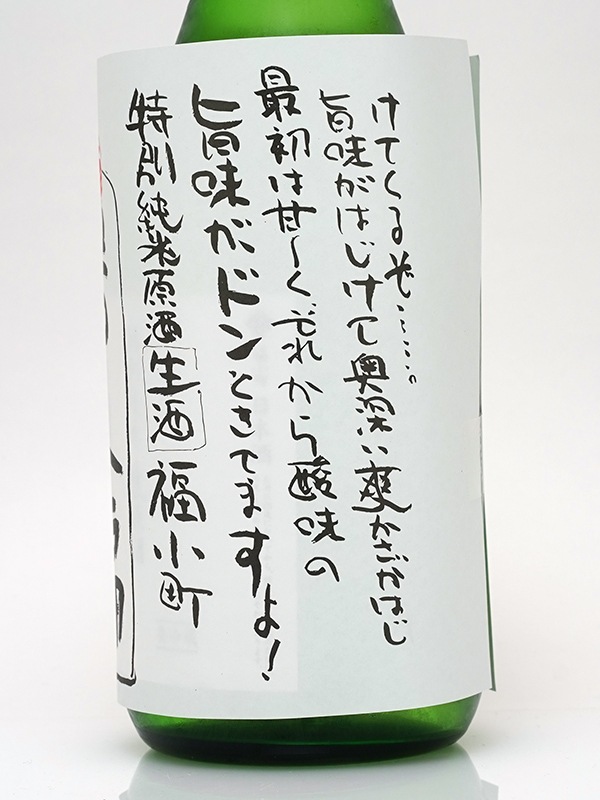 特別純米原酒 生酒 福小町
旨味がドンときてますよ！
最初は甘〜く、それから酸味の
旨味がはじけて奥深い爽かさがはじ
けてくるぞ……。